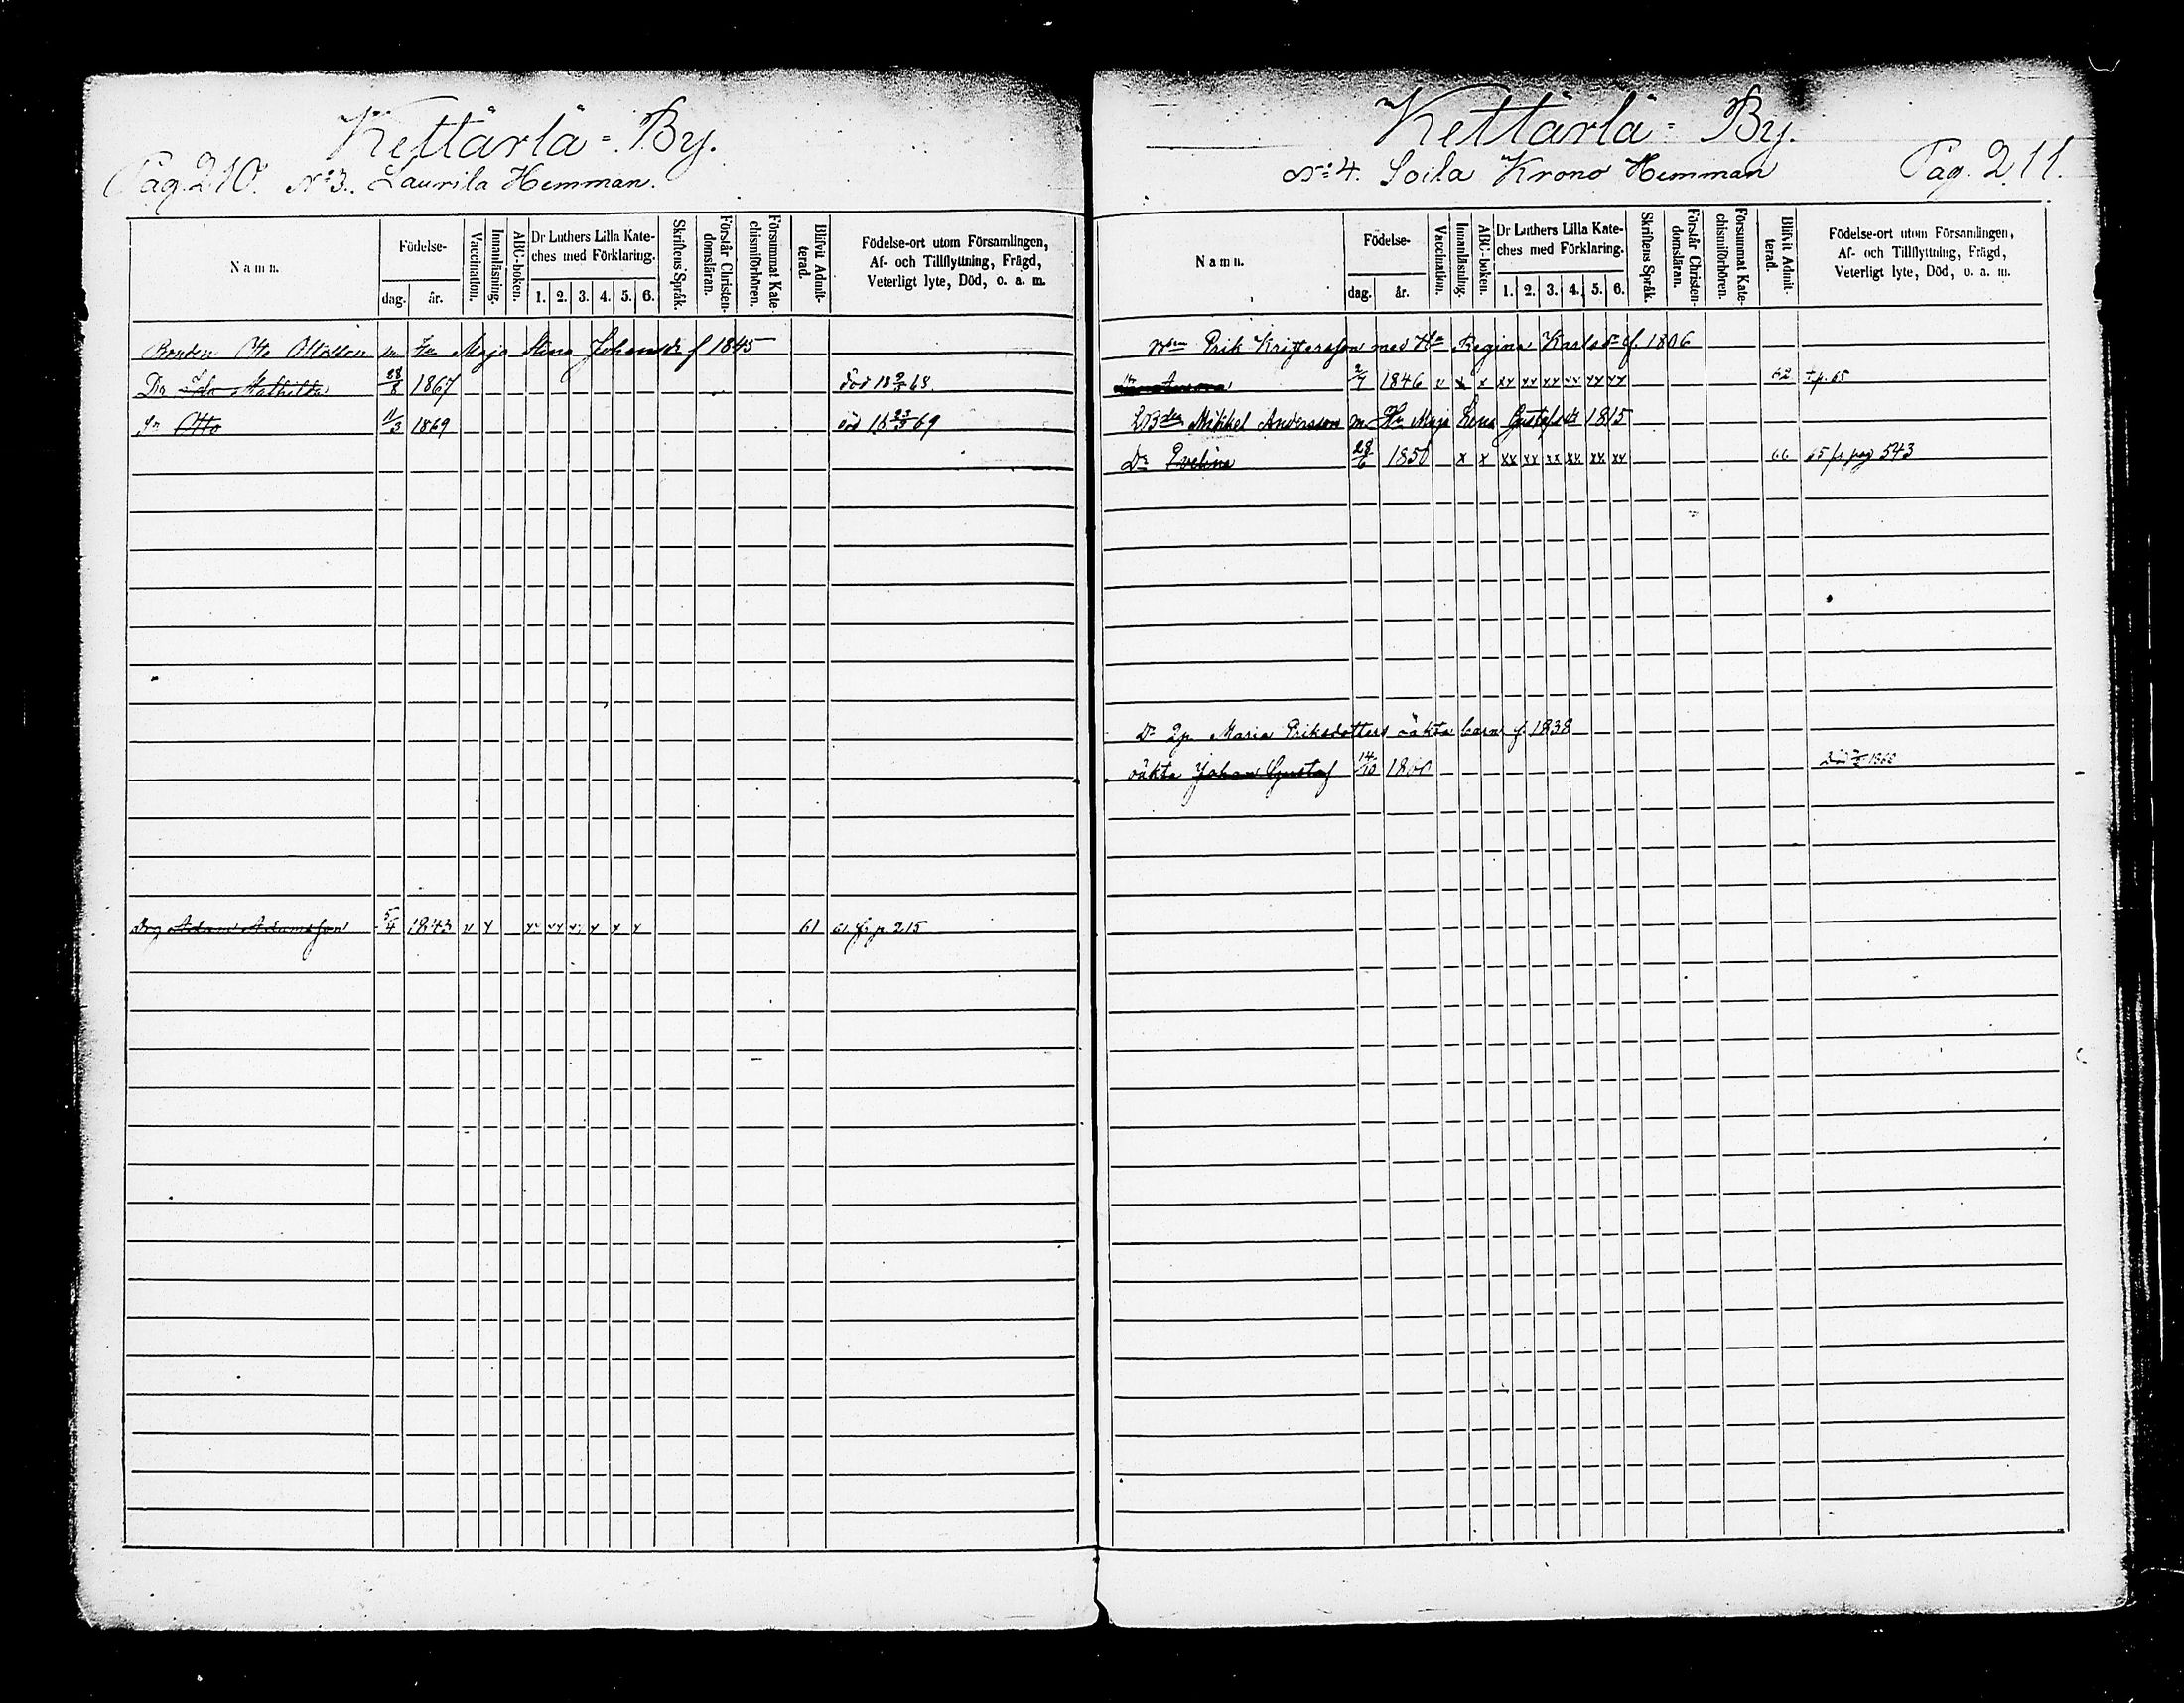 Kettärlä = By.
Pag. 210. No 3. Laurila Hemman.
Namn.
Födelse-
dag. år.
Vaccination.
Innanläsning.
ABC-boken.
Dr Luthers Lilla Kate-
ches med Förklaring.
1. 2. 3. 4. 5. 6.
Skriftens Språk.
Förstår Christen-
domsläran.
Försummat Kate-
chismiförhören.
Blifvit Admit-
terad.
Födelse-ort utom Församlingen,
Af- och Tillflyttning, Frägd,
Veterligt lyte, Död, o. a. m.
Bonden Otto Ottosson m Hu Maja Stina Johansdr f 1845
Dr Ida Mathilda 28/8 1867 död 18 68
Sn Otto 11/3 1869 död 18 23/3 69
Adam Adamsson 5/4 1843 v x xx xx x x x 61 61 fr p. 215
Kettärlä = By.
No 4. Soila Krono Hemman
Pag. 211.
Namn.
Födelse-
dag. år.
Vaccination.
Innanläsning.
ABC-boken.
Dr Luthers Lilla Kate-
ches med Förklaring.
1. 2. 3. 4. 5. 6.
Skriftens Språk.
Förstår Christen-
domsläran.
Försummat Kate-
chismiförhören.
Blifvit Admit-
terad.
Födelse-ort utom Församlingen,
Af- och Tillflyttning, Frägd,
Veterligt lyte, Död, o. a. m.
Erik Kristersson med Hu Regina Karlsdr f. 1806
2/7 1846 v x x xx xx xx xx xx xx 62 t.p. 65
Mikkel Andersson m. Hu Maja Lena Gustafsdr 1815
Dr Evelina 28/6 1850 x x xx xx xx xx xx xx 66 65 fr pag 543
Dr Maria Eriksdotters oäkta barn f. 1838
oäkta Johan Gustaf 14/10 1860 Död 1862